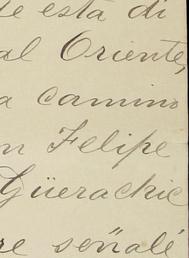 te está di
al Oriente,
a camino
n Felipe
Güerachic
re señalé